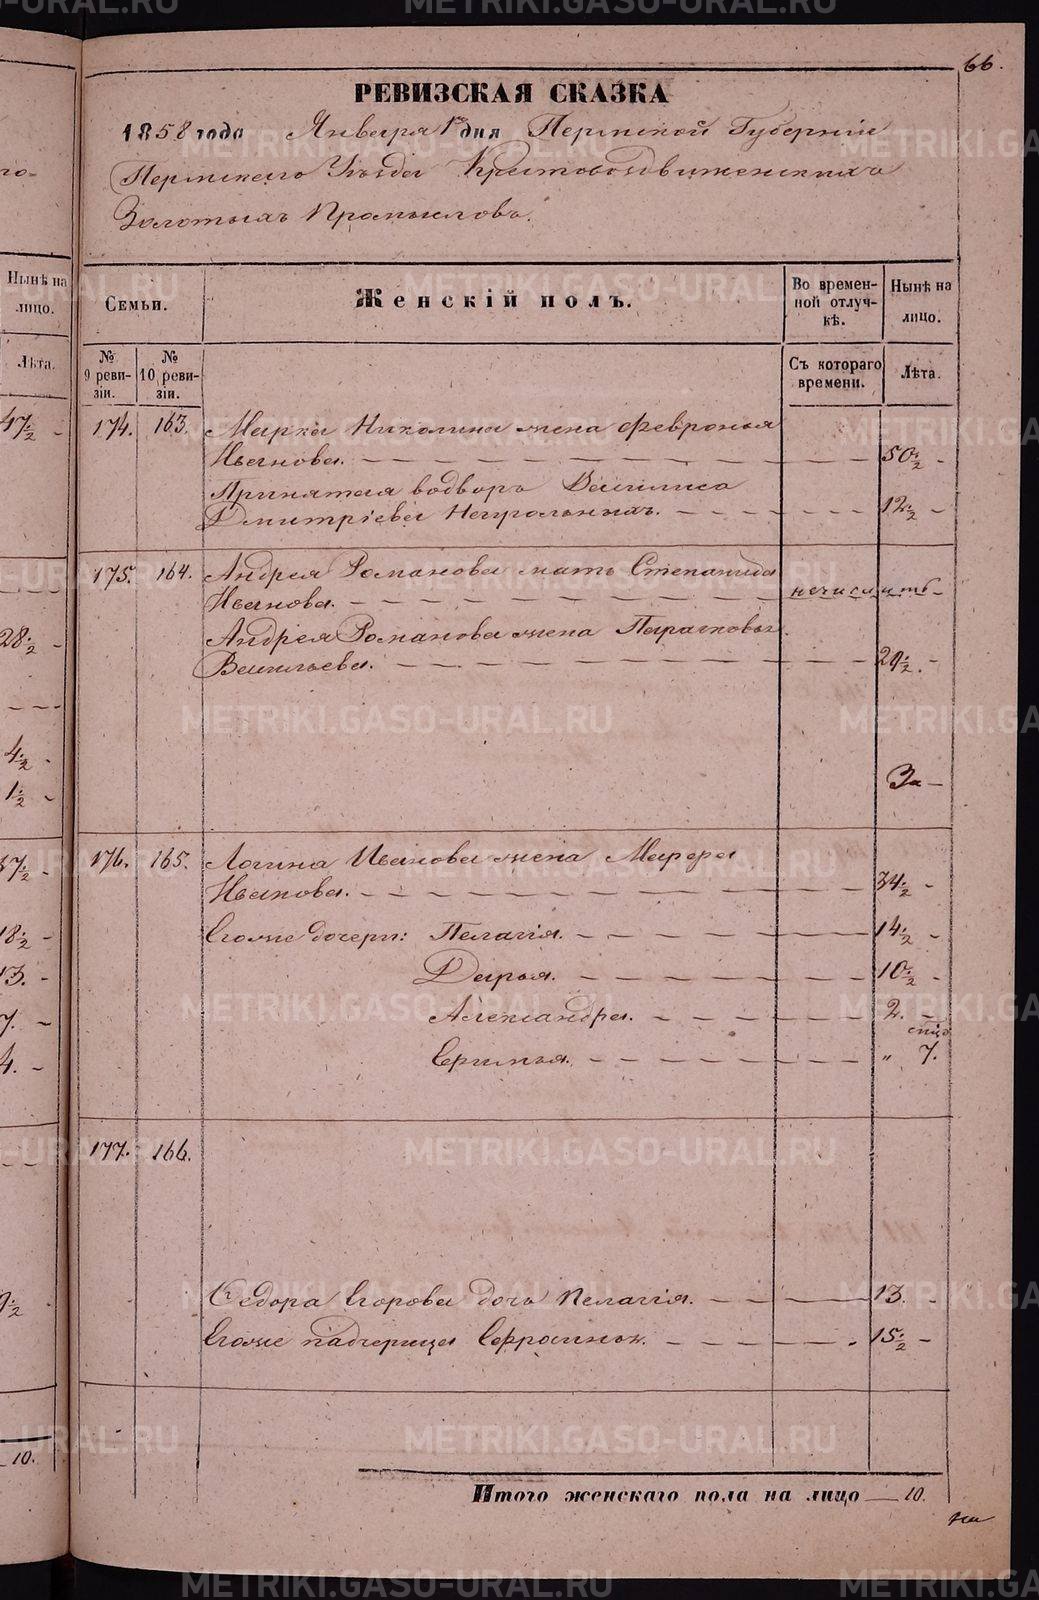 66.
РЕВИЗСКАЯ СКАЗКА
1858 года Января 1го дня Пермской Губерніи
Пермскаго Уѣзда Крестовоздвиженскихъ
Золотыхъ Промысловъ.
Нынѣ на лицо.
Лѣта.
47½ -
28½ -
4½ -
1½ -
37½ -
18½ -
13. -
7. -
4. -
10.
Семьи.
Женскій полъ.
Во времен-
ной отлуч-
кѣ.
Нынѣ на
лицо.
№
9 реви-
зіи.
№
10 реви-
зіи.
Съ котораго
времени.
Лѣта.
174. 163. Марка Николина жена Февронья
Иванова. 50½ -
Принятая водворъ Василиса
Дмитріева Непрольныхъ. 12½ -
175. 164. Андрея Романова мать Степанида
Иванова. нечислить
Андрея Романова жена Парасковья
Васильева. 29½ -
За -
176. 165. Логина Иванова жена Марфа
Иванова. 34½ -
Егоже дочери: Пелагія. 14½ -
Дарья. 10½ -
Александра. 2. -
Ефимья. " 7.
177. 166.
Федора Егорова дочь Пелагія. 13. -
Егоже падчерица Ефросинья. 15½ -
Итого женскаго пола на лицо 10.
METRIKI.GASO-URAL.RU